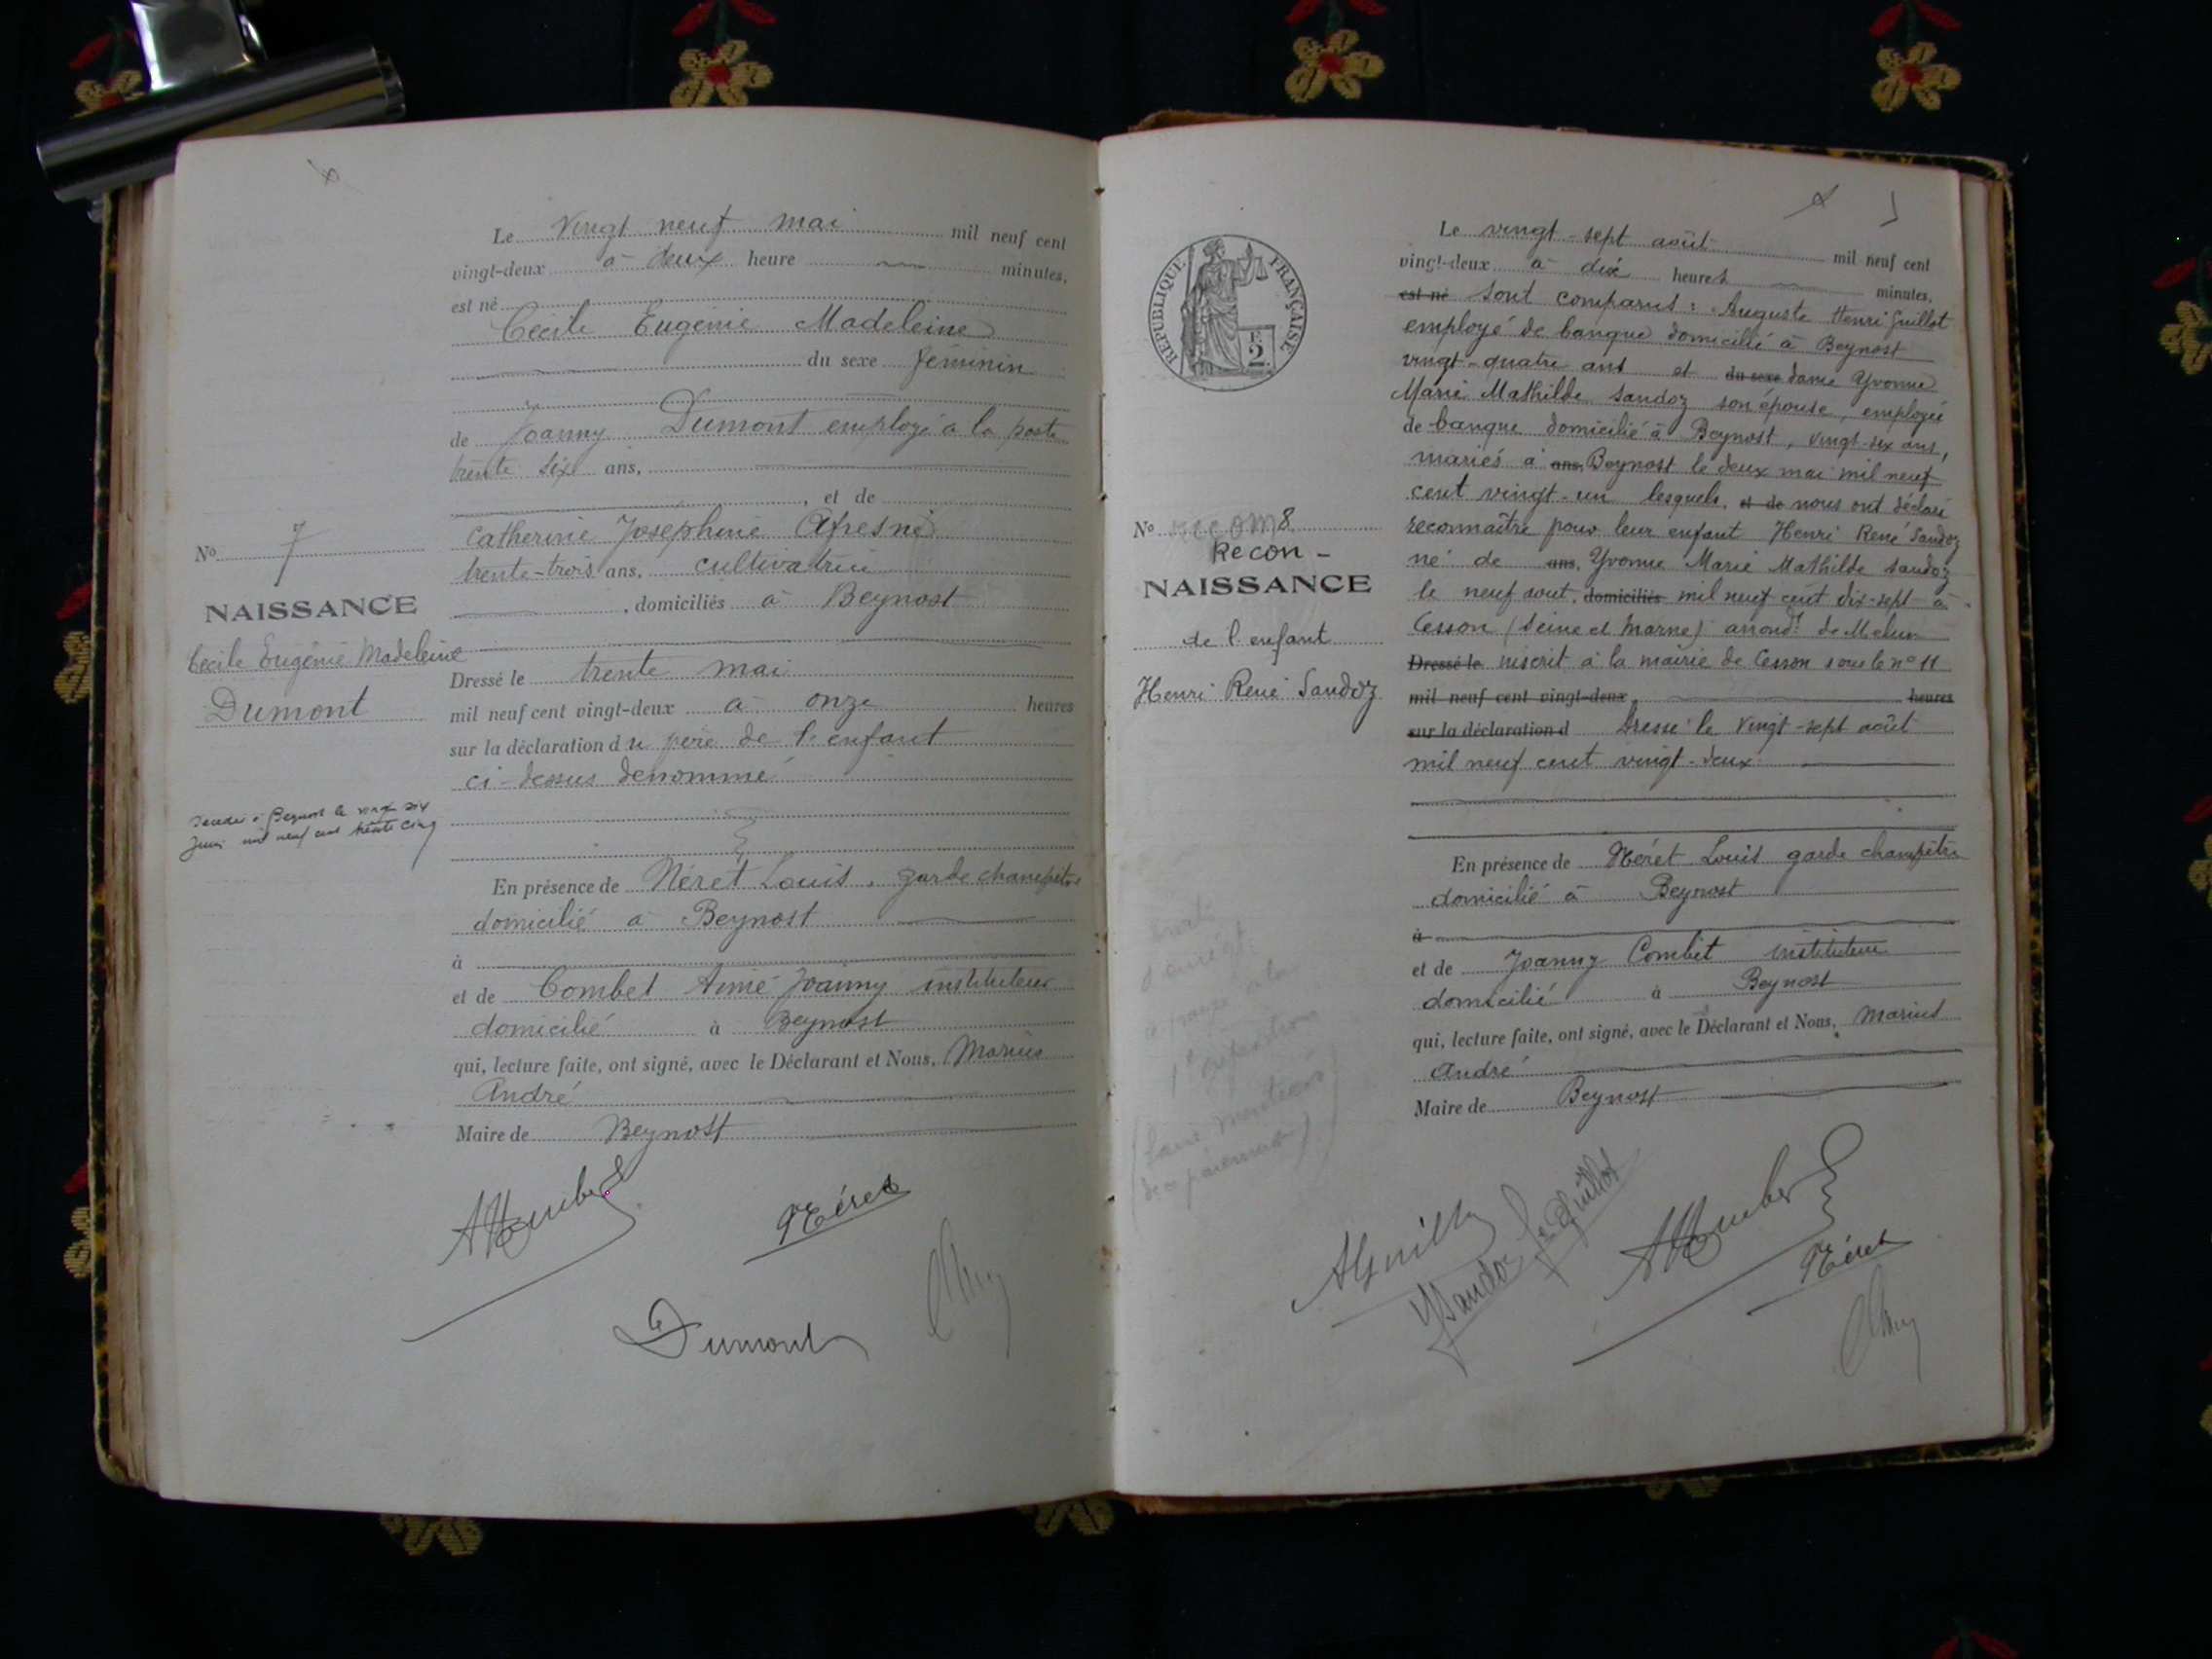 Le vingt neuf mai mil neuf cent
vingt-deux à deux heure minutes,
est né
Cécile Eugénie Madeleine
du sexe féminin
de Joanny Dumont employé à la poste
trente six ans,
, et de
Catherine Joséphine
trente-trois ans, cultivatrice
, domiciliés à Beynost
Dressé le trente mai
mil neuf cent vingt-deux à onze heures
sur la déclaration du père de l'enfant
ci-dessus dénommé
En présence de Néret Louis, garde champêtre
domicilié à Beynost
à
et de Combet Aimé Joanny instituteur
domicilié à Beynost
qui, lecture faite, ont signé, avec le Déclarant et Nous, Marius
André
Maire de Beynost
Néret
Dumont
No 7
NAISSANCE
Cécile Eugénie Madeleine
Dumont
décédée à Beynost le vingt six
juin mil neuf cent trente cinq
RÉPUBLIQUE FRANÇAISE
No 8
Recon-
NAISSANCE
de l'enfant
Henri René Sandoz
Le vingt-sept août mil neuf cent
vingt-deux à dix heures minutes,
est né sont comparus : Auguste Henri Guillot
employé de banque domicilié à Beynost
vingt-quatre ans et du sexe dame Yvonne
Marie Mathilde Sandoz son épouse, employée
de banque domicilié à Beynost, vingt-six ans,
mariés à ans, Beynost le deux mai mil neuf
cent vingt-un lesquels, et de nous ont déclaré
reconnaître pour leur enfant Henri René Sandoz
né de ans, Yvonne Marie Mathilde Sandoz
le neuf aout, domiciliés mil neuf cent dix-sept à
Cesson (Seine et Marne) arrondt de Melun
Dressé le inscrit à la mairie de Cesson sous le n° 11
mil neuf cent vingt-deux heures
sur la déclaration d Dressé le vingt-sept août
mil neuf cent vingt-deux
En présence de Néret Louis garde champêtre
domicilié à Beynost
à
et de Joanny Combet instituteur
domicilié à Beynost
qui, lecture faite, ont signé, avec le Déclarant et Nous, Marius
André
Maire de Beynost
AGuillot
YSandoz fe Guillot
Néret